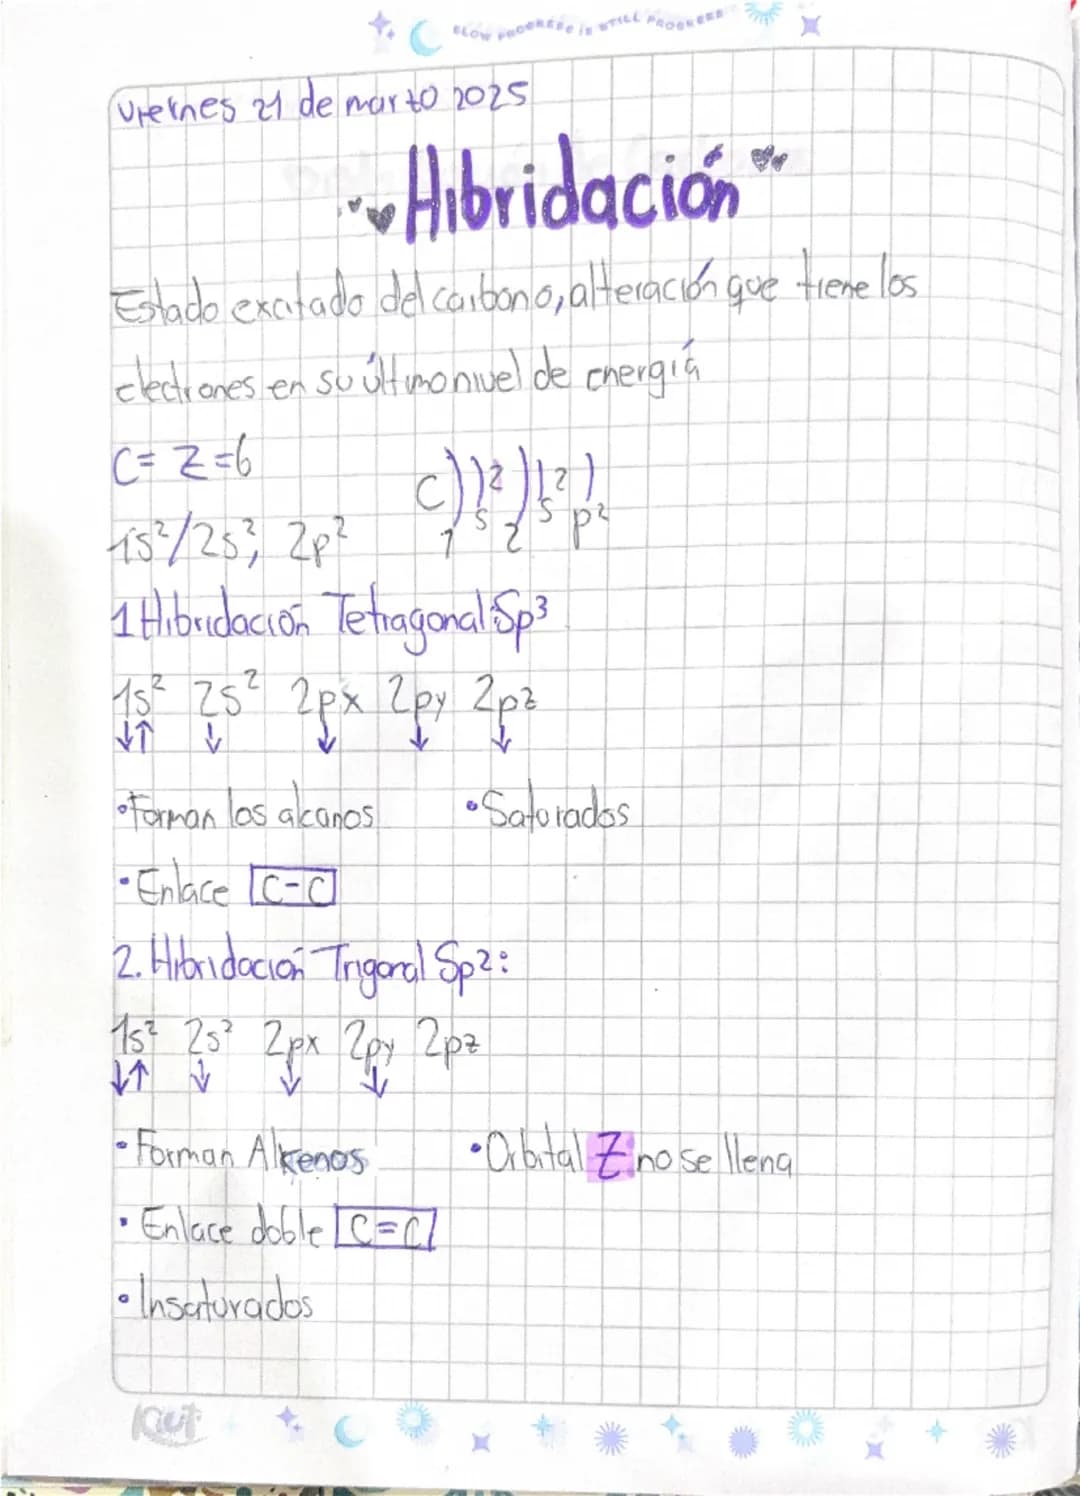 SLOW PROGRESS IS STILL PROGRESS
Viernes 21 de marzo 2025
Hibridación
Estado exitado del carbono, alteración que tiene los
electrones en su último nivel de energiá
C= Z=6
C))²))²)
1 s 2 s p²
1s²/2s², 2p²
1 Hibridación Tetragonal Sp3
1s² 2s² 2px 2py 2pz
↓↑ ↓ ↓ ↓ ↓
•Forman los alcanos •Saturados
•Enlace C-C
2. Hibridación Trigonal Sp2:
1s² 2s² 2px 2py 2pz
↓↑ ↓ ↓ ↓
•Forman Alkenos •Orbital Z no se llena
•Enlace doble C=C
•Insaturados